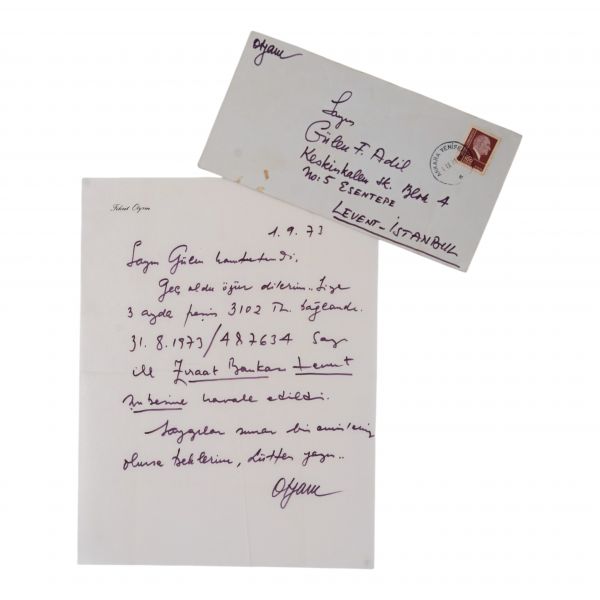 Otyam
Sayın
Gülen F. Adil
Keskinkalem Sk. Blok 4
No: 5 ESENTEPE
LEVENT-İSTANBUL
ANKARA YENİŞEHİR
Fikret Otyam
1.9.73
Sayın Gülen hanımefendi,
Geç oldu özür dilerim.. Size
3 ayda peşin 3102 TL. bağlandı.
31.8.1973/487634 Sayı
ile Ziraat Bankası Levent
şubesine havale edildi.
Saygılar sunar bir emriniz
olursa beklerim, Lütfen yazın..
Otyam